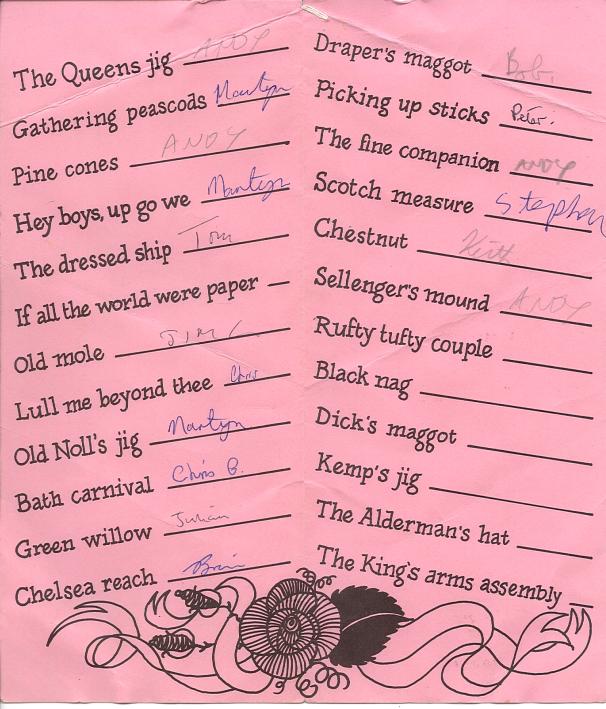 The Queens jig ANDY
Gathering peascods Martyn
Pine cones ANDY
Hey boys, up go we Martyn
The dressed ship Tom
If all the world were paper
Old mole JIM
Lull me beyond thee Chris
Old Noll's jig Martyn
Bath carnival Chris B.
Green willow Julian
Chelsea reach Brian
Draper's maggot Bob.
Picking up sticks Peter.
The fine companion ANDY
Scotch measure Stephen
Chestnut Keith
Sellenger's mound ANDY
Rufty tufty couple
Black nag
Dick's maggot
Kemp's jig
The Alderman's hat
The King's arms assembly